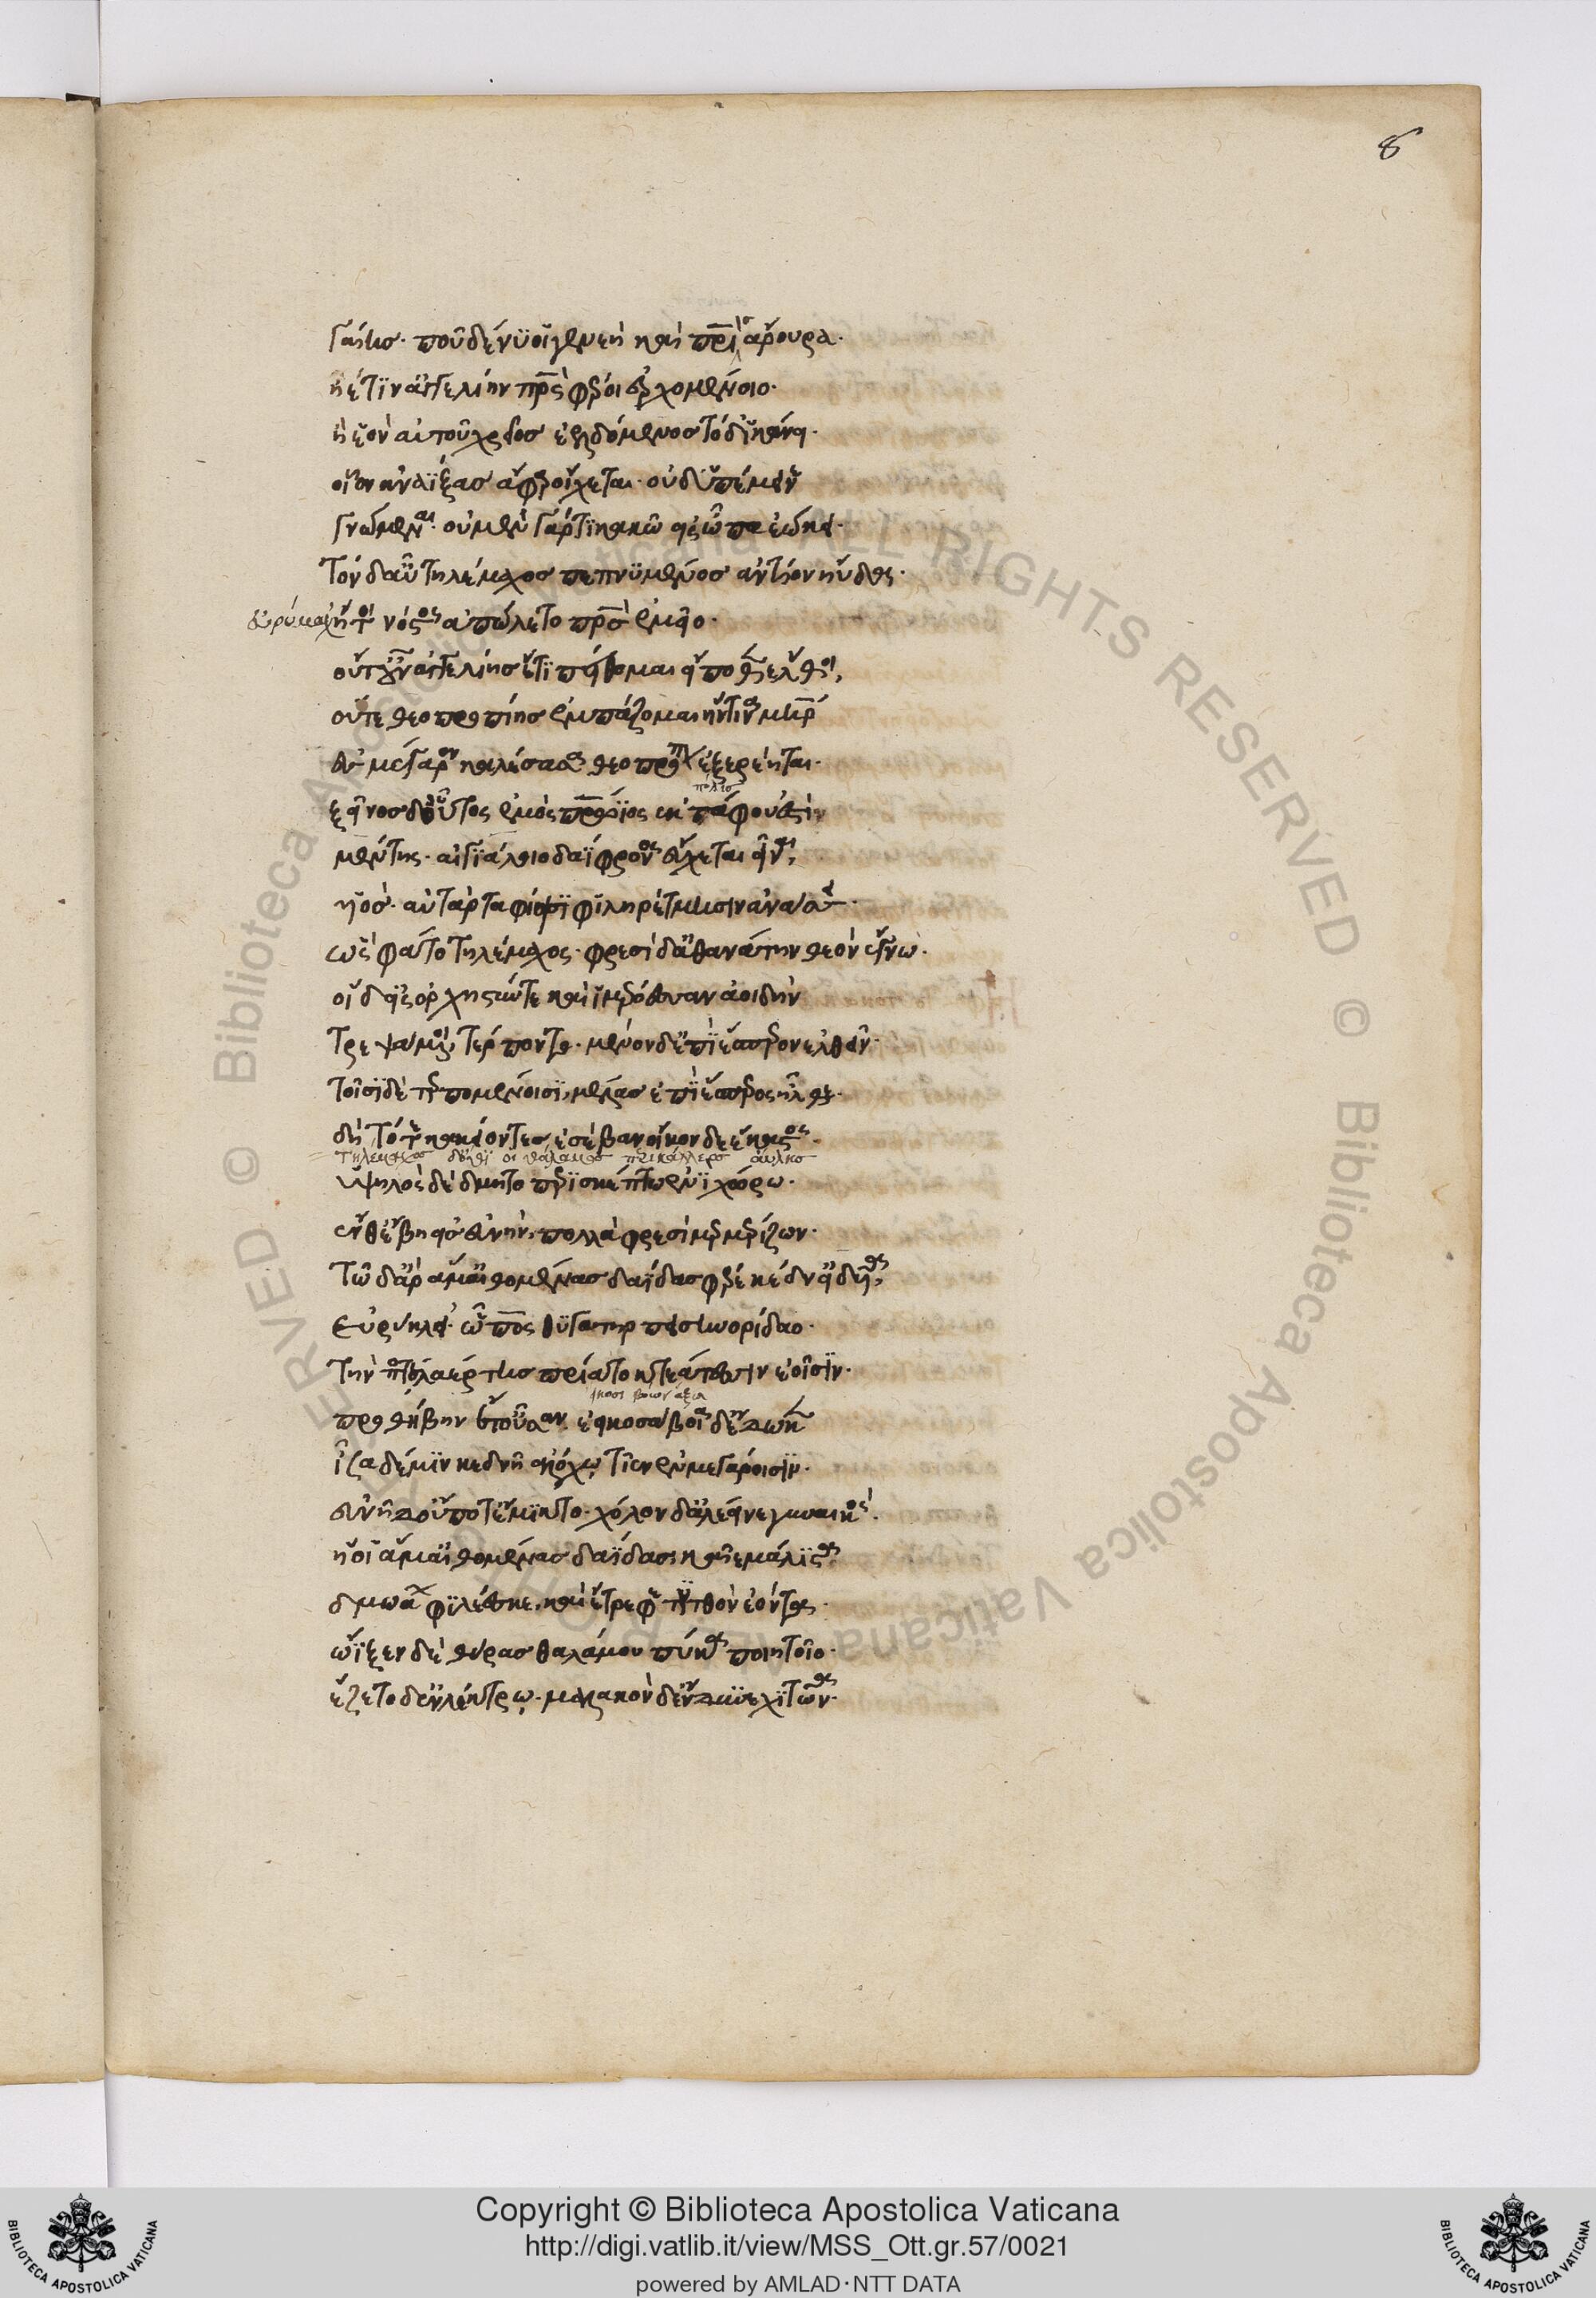 8
γαίης· ποῦ δέ νύ οἱ γενεὴ καὶ πατρὶς ἄρουρα·
ἠέ τιν ἀγγελίην πατρὸς φέρει ἐρχομένοιο·
ἢ ἑὸν αὐτοῦ χρεῖος ἐελδόμενος τόδ ἱκάνει·
οἷον ἀναΐξας ἄφαρ οἴχεται· οὐδ ὑπέμεινε
γνώμεναι· οὐ μὲν γάρ τι κακῷ εἰς ὦπα ἐῴκει·
Τὸν δ αὖ Τηλέμαχος πεπνυμένος ἀντίον ηὔδα·
εὐρύμαχ ἤτοι νόστος ἀπώλετο πατρὸς ἐμεῖο·
οὔτ οὖν ἀγγελίης ἔτι πείθομαι εἴ ποθεν ἔλθοι,
οὔτε θεοπροπίης ἐμπάζομαι ἥντινα μήτηρ
ἐς μέγαρον καλέσασα θεοπρόπον ἐξερέηται·
ξεῖνος δ οὗτος ἐμὸς πατρώϊος ἐκ τάφου ἐστὶν
μέντης· ἀγχιάλοιο δαΐφρονος εὔχεται εἶναι
υἱός· αὐτὰρ ταφίοισι φιληρέτμοισιν ἀνάσσει·
ὣς φάτο Τηλέμαχος· φρεσὶ δ ἀθανάτην θεὸν ἔγνω·
οἱ δ εἰς ὀρχηστύν τε καὶ ἱμερόεσσαν ἀοιδὴν
τρεψάμενοι τέρποντο· μένον δ ἐπὶ ἕσπερον ἐλθεῖν·
Τοῖσι δὲ τερπομένοισι, μέλας ἐπὶ ἕσπερος ἦλθε·
δὴ τότε κακείοντες ἔβαν οἶκον δὲ ἕκαστος·
τηλέμαχος δ ὅθι οἱ θάλαμος περικαλλέος αὐλῆς
ὑψηλὸς δέδμητο περισκέπτῳ ἐνὶ χώρῳ·
ἔνθ ἔβη εἰς εὐνήν, πολλὰ φρεσὶ μερμηρίζων·
Τῷ δ ἄρ ἅμ αἰθομένας δαΐδας φέρε κέδν εἰδυῖα,
Εὐρύκλει· ὦπος θυγάτηρ πεισηνορίδαο·
Τήν ποτε λαέρτης πρίατο κτεάτεσσιν ἑοῖσιν·
πρωθήβην ἔτ ἐοῦσαν. ἐεικοσάβοια δ ἔδωκεν
ἶσα δέ μιν κεδνῇ ἀλόχῳ τῖεν ἐν μεγάροισιν·
εὐνῇ δ οὔποτ ἔμικτο· χόλον δ ἀλέεινε γυναικός·
ἥ οἱ ἅμ αἰθομένας δαΐδας φέρε καί ἑ μάλιστα
δμωάων φιλέεσκε, καὶ ἔτρεφε τυτθὸν ἐόντα·
ὤϊξεν δὲ θύρας θαλάμου πύκα ποιητοῖο·
ἕζετο δ ἐν λέκτρῳ· μαλακὸν δ ἔκδυνε χιτῶνα·
Copyright © Biblioteca Apostolica Vaticana
http://digi.vatlib.it/view/MSS_Ott.gr.57/0021
powered by AMLAD·NTT DATA